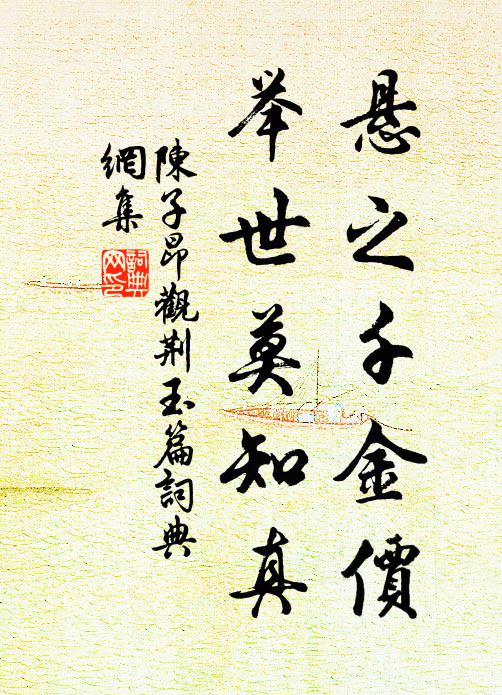 悬之千金價
举世莫知真
陳子昂觀荆玉篇詞典
網集
詞典
网印